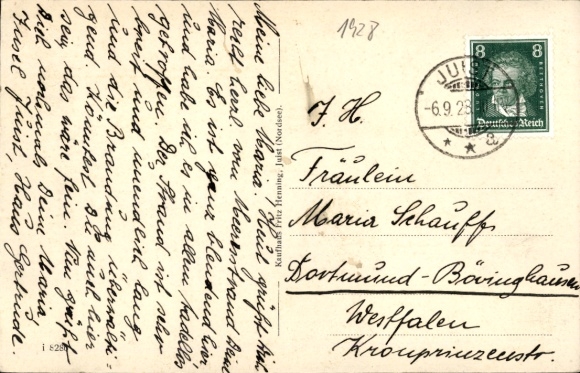 1928
Meine liebe Maria! Heut grüßt Dich
recht herzl. vom Meeresstrand Deine
Maria. Es ist ganz blendend hier
und habe ich es in allem tadellos
getroffen. Der Strand ist sehr
breit und unendlich lang
und die Brandung überwälti-
gend. Könntest Du auch hier
sein, das wäre fein. Nun grüßt
Dich nochmals Deine Maria
Insel Juist, Haus Gertrude.
Kaufhaus Fritz Henning, Juist (Nordsee).
i 8280
8 8
BEETHOVEN
Deutsches Reich
JUIST
-6.9.28.
* * a
I. H.
Fräulein
Maria Schauff
Dortmund-Bövinghausen
Westfalen
Kronprinzenstr.